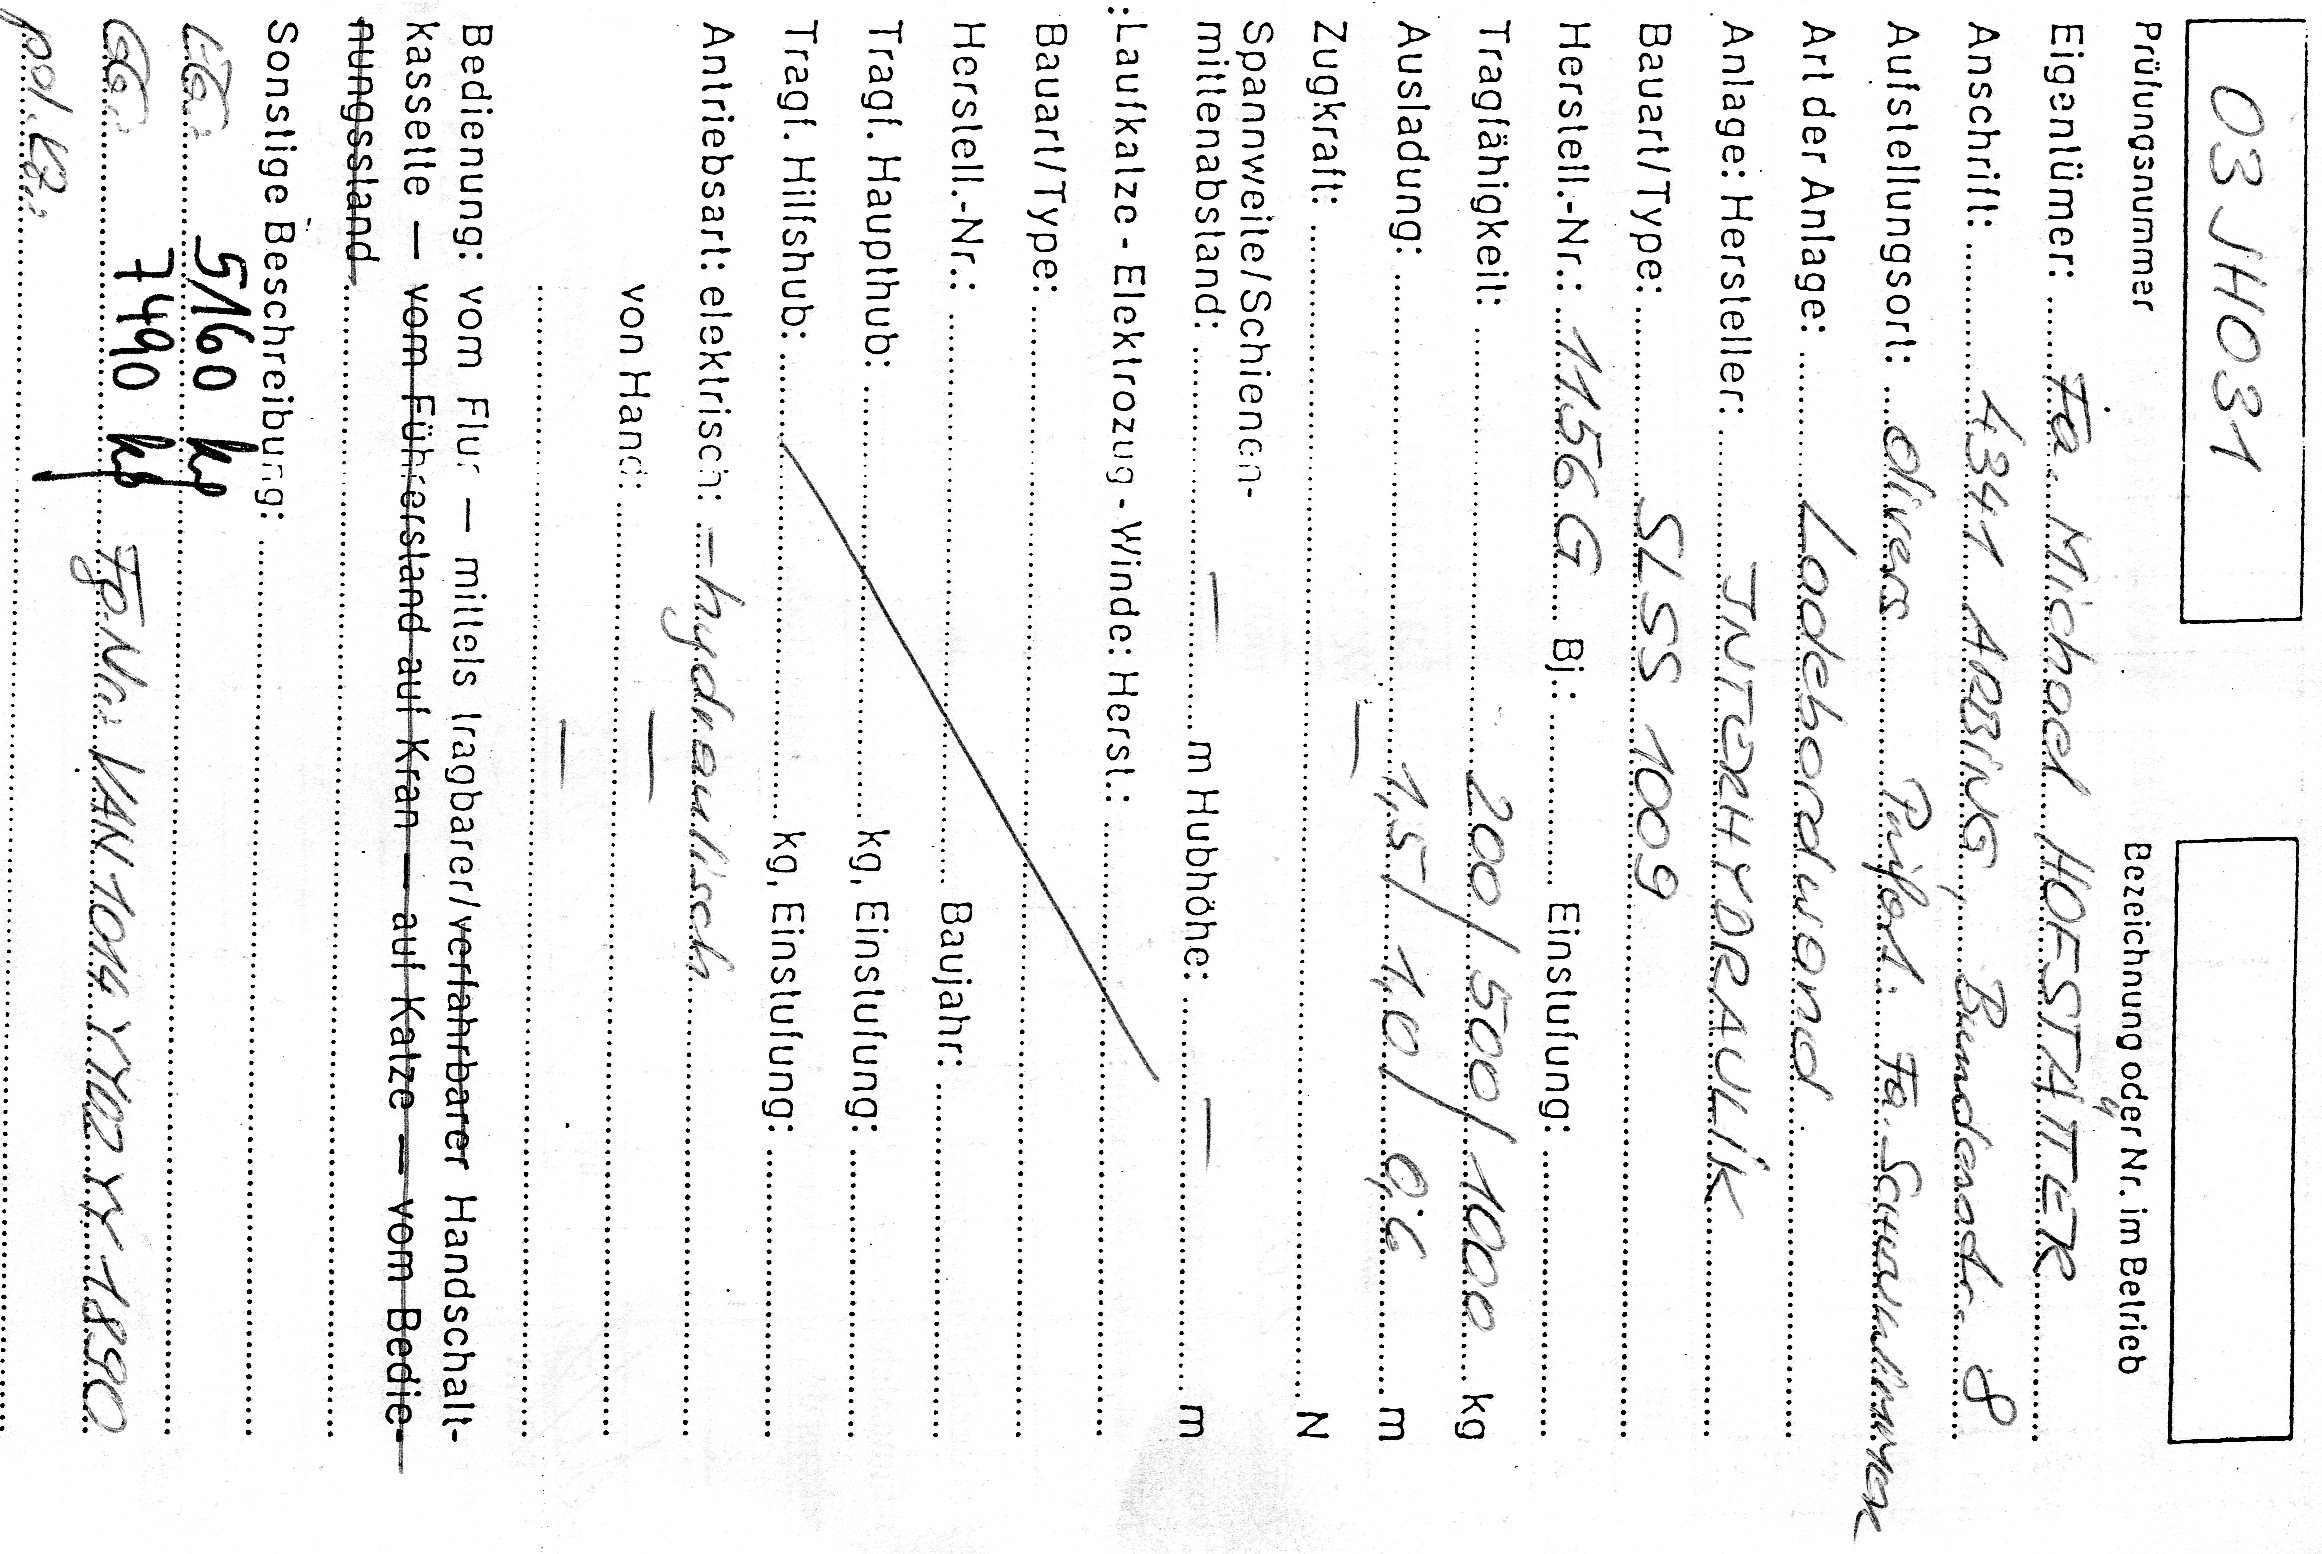 03 JH031
Prüfungsnummer
Bezeichnung oder Nr. im Betrieb
Eigentümer: Fa. Michael HOFSTÄTTER
Anschrift: 4341 ARBING, Bundesstr. 8
Aufstellungsort: divers Prüfort. Fa.
Art der Anlage: Ladebordwand
Anlage: Hersteller: INTERHYDRAULIK
Bauart/Type: SLSS 1009
Herstell.-Nr.: 1156G Bj.: Einstufung:
Tragfähigkeit: 200/500/1000 kg
Ausladung: 1,5/1,0/0,6 m
Zugkraft: — N
Spannweite/Schienen-
mittenabstand: — m Hubhöhe: — m
:Laufkatze - Elektrozug - Winde: Herst.:
Bauart/Type:
Herstell.-Nr.: Baujahr:
Tragf. Haupthub: kg, Einstufung:
Tragf. Hilfshub: kg, Einstufung:
Antriebsart: elektrisch: – hydraulisch
von Hand: —
—
Bedienung: vom Flur — mittels tragbarer/verfahrbarer Handschalt-
kassette — vom Führerstand auf Kran — auf Katze — vom Bedie-
nungsstand
Sonstige Beschreibung:
5160 kg
7490 kg FgNr.: VAN 1014 YY02 YY 18900
pol. Kz.: